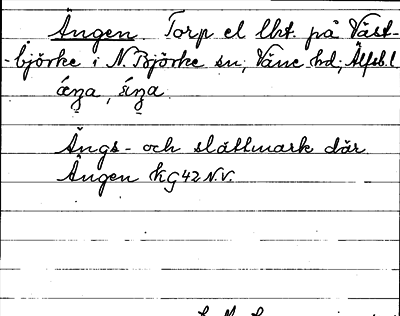 Ängen. Torp el lht. på Väst-
-björke i N. Björke sn, Väne hd; Älfsb. l
Ängs- och slåttmark där.
Ängen KG42N.V.